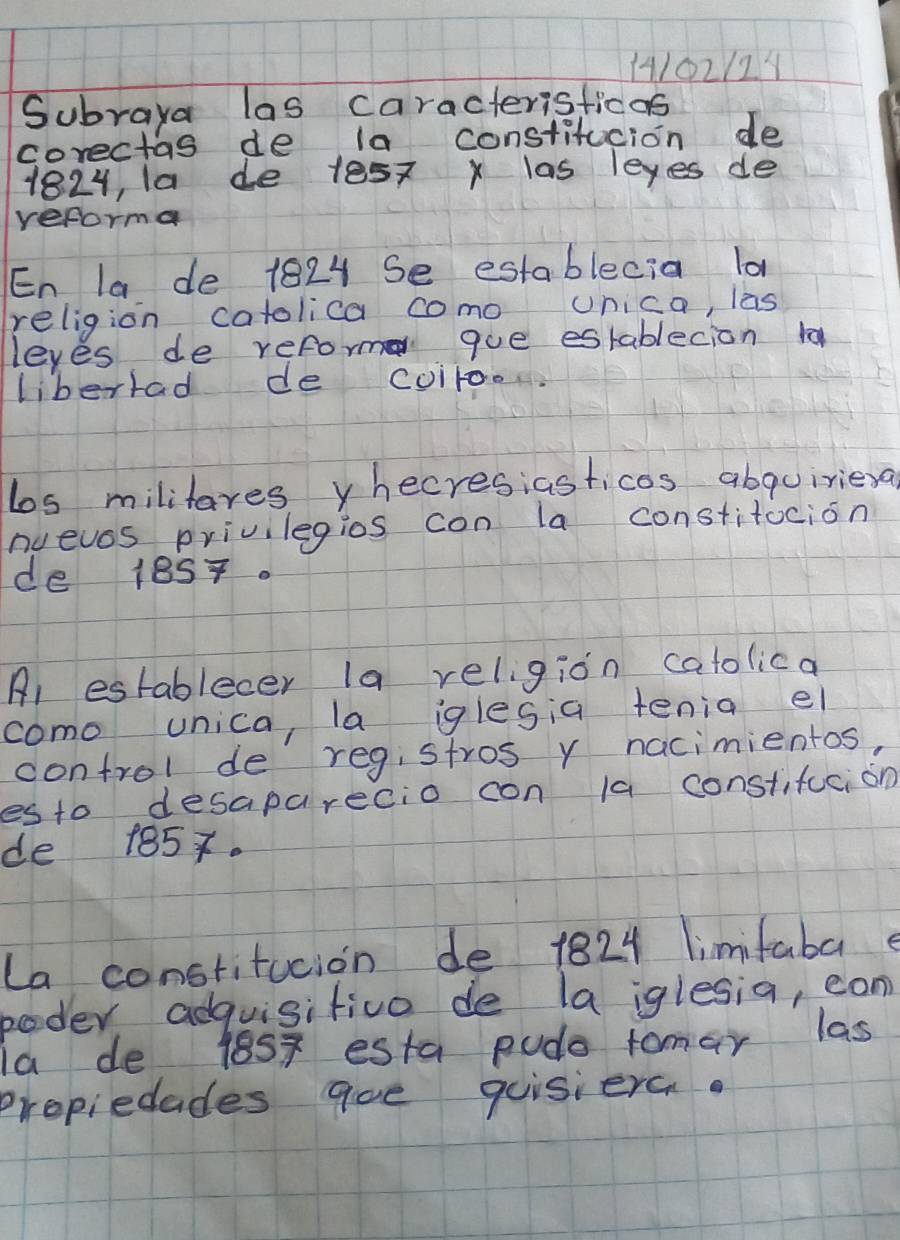 14/02/24
Subraya las caracteristicas
corectas de la constitución de
1824, la de 1857 y las leyes de
reforma
En la de 1824 Se establecia la
religión catolica como unica, las
leyes de reforma que establecion la
libertad de culto.
los militares y hecresiasticos abquiriera
nuevos privilegios con la constitución
de 1857.
Al establecer la religión catolica
como unica, la iglesia tenia el
control de registros y nacimientos,
esto desaparecio con la constitución
de 1857.
La constitución de 1824 limitaba e
poder adquisitivo de la iglesia, con
la de 1857 esta pudo tomar las
propiedades que quisiera.